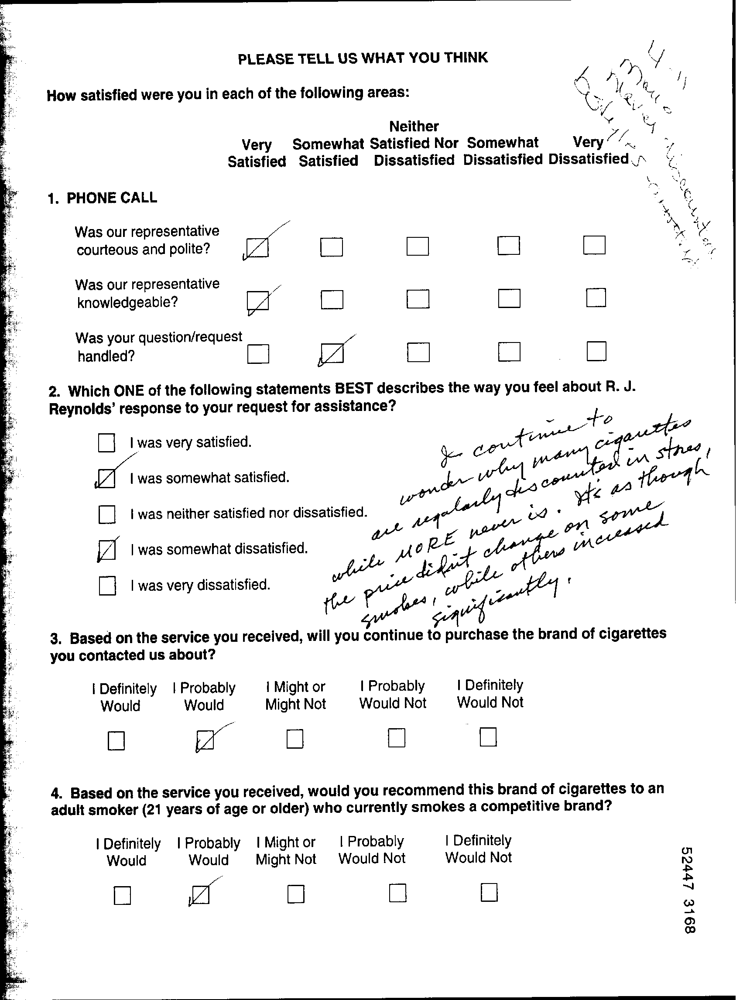 PLEASE TELL US WHAT YOU THINK
4-11
More
never discounted
How satisfied were you in each of the following areas:
Neither
Very Somewhat Satisfied Nor Somewhat Very
Satisfied Satisfied Dissatisfied Dissatisfied Dissatisfied
1. PHONE CALL
Was our representative
courteous and polite?
Was our representative
knowledgeable?
Was your question/request
handled?
2. Which ONE of the following statements BEST describes the way you feel about R. J.
Reynolds' response to your request for assistance?
I was very satisfied.
I was somewhat satisfied.
I was neither satisfied nor dissatisfied.
I was somewhat dissatisfied.
I was very dissatisfied.
I continue to
wonder why many cigarettes
are regularly discounted in stores,
while MORE never is. It's as though
the price didn't change on some
smokes, while others increased
significantly.
3. Based on the service you received, will you continue to purchase the brand of cigarettes
you contacted us about?
I Definitely I Probably I Might or I Probably I Definitely
Would Would Might Not Would Not Would Not
4. Based on the service you received, would you recommend this brand of cigarettes to an
adult smoker (21 years of age or older) who currently smokes a competitive brand?
I Definitely I Probably I Might or I Probably I Definitely
Would Would Might Not Would Not Would Not
52447 3168